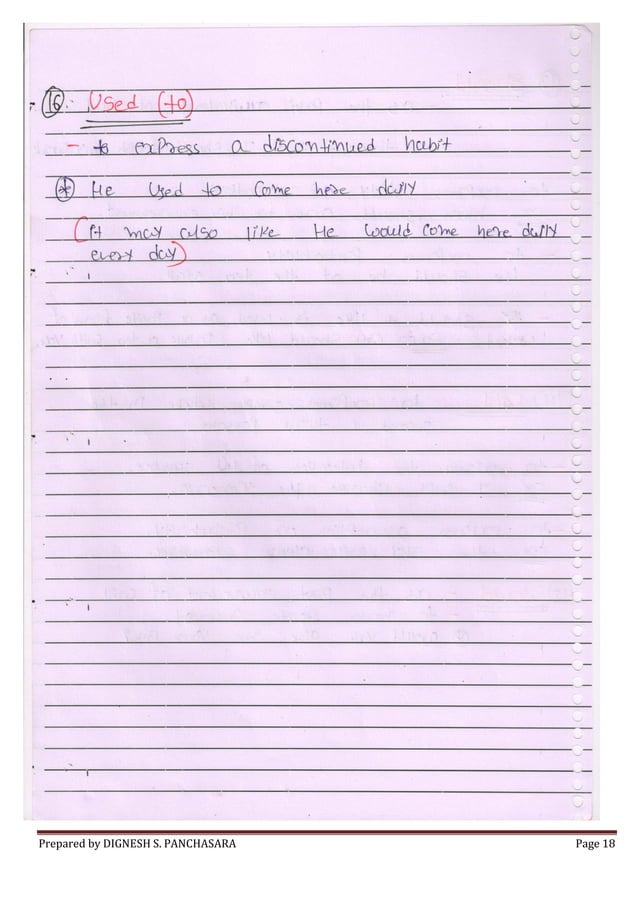 16. Used (to)
- to express a discontinued habit
* He Used to Come here daily
(It may also like He Would Come here daily
every day)
Prepared by DIGNESH S. PANCHASARA Page 18